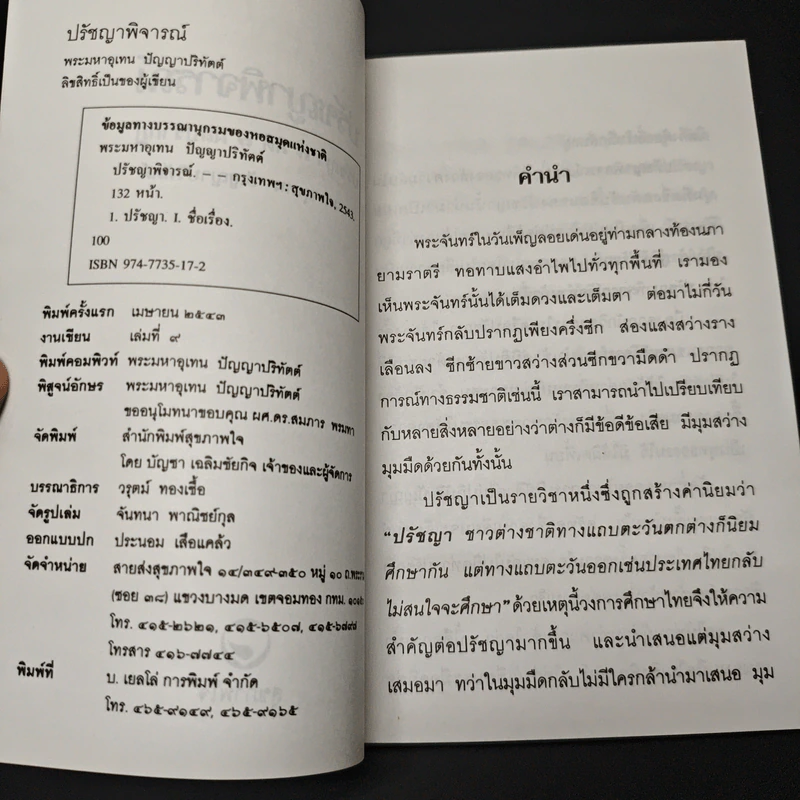 ปรัชญาพิจารณ์
พระมหาอุเทน ปัญญาปริทัตต์
ลิขสิทธิ์เป็นของผู้เขียน
ข้อมูลทางบรรณานุกรมของหอสมุดแห่งชาติ
พระมหาอุเทน ปัญญาปริทัตต์
ปรัชญาพิจารณ์. – – กรุงเทพฯ : สุขภาพใจ, 2543.
132 หน้า.
1. ปรัชญา. I. ชื่อเรื่อง.
100
ISBN 974-7735-17-2
พิมพ์ครั้งแรก เมษายน ๒๕๔๓
งานเขียน เล่มที่ ๙
พิมพ์คอมพิวท์ พระมหาอุเทน ปัญญาปริทัตต์
พิสูจน์อักษร พระมหาอุเทน ปัญญาปริทัตต์
ขออนุโมทนาขอบคุณ ผศ.ดร.สมภาร พรมทา
จัดพิมพ์ สำนักพิมพ์สุขภาพใจ
โดย บัญชา เฉลิมชัยกิจ เจ้าของและผู้จัดการ
บรรณาธิการ วรุตม์ ทองเชื้อ
จัดรูปเล่ม จันทนา พาณิชย์กุล
ออกแบบปก ประนอม เสือแคล้ว
จัดจำหน่าย สายส่งสุขภาพใจ ๑๔/๓๔๙-๓๕๐ หมู่ ๑๐ ถ.พระราม
(ซอย ๓๘) แขวงบางมด เขตจอมทอง กทม.
โทร. ๔๑๕-๒๖๒๑, ๔๑๕-๖๕๐๗, ๔๑๕-๖๗๙๗
โทรสาร ๔๑๖-๗๗๔๔
พิมพ์ที่ บ. เยลโล่ การพิมพ์ จำกัด
โทร. ๔๖๕-๙๑๔๙, ๔๖๕-๙๑๖๕
คำนำ
พระจันทร์ในวันเพ็ญลอยเด่นอยู่ท่ามกลางท้องนภา
ยามราตรี ทอทาบแสงอำไพไปทั่วทุกพื้นที่ เรามอง
เห็นพระจันทร์นั้นได้เต็มดวงและเต็มตา ต่อมาไม่กี่วัน
พระจันทร์กลับปรากฏเพียงครึ่งซีก ส่องแสงสว่างราง
เลือนลง ซีกซ้ายขาวสว่างส่วนซีกขวามืดดำ ปรากฏ
การณ์ทางธรรมชาติเช่นนี้ เราสามารถนำไปเปรียบเทียบ
กับหลายสิ่งหลายอย่างว่าต่างก็มีข้อดีข้อเสีย มีมุมสว่าง
มุมมืดด้วยกันทั้งนั้น
ปรัชญาเป็นรายวิชาหนึ่งซึ่งถูกสร้างค่านิยมว่า
“ปรัชญา ชาวต่างชาติทางแถบตะวันตกต่างก็นิยม
ศึกษากัน แต่ทางแถบตะวันออกเช่นประเทศไทยกลับ
ไม่สนใจจะศึกษา” ด้วยเหตุนี้วงการศึกษาไทยจึงให้ความ
สำคัญต่อปรัชญามากขึ้น และนำเสนอแต่มุมสว่าง
เสมอมา ทว่าในมุมมืดกลับไม่มีใครกล้านำมาเสนอ มุม